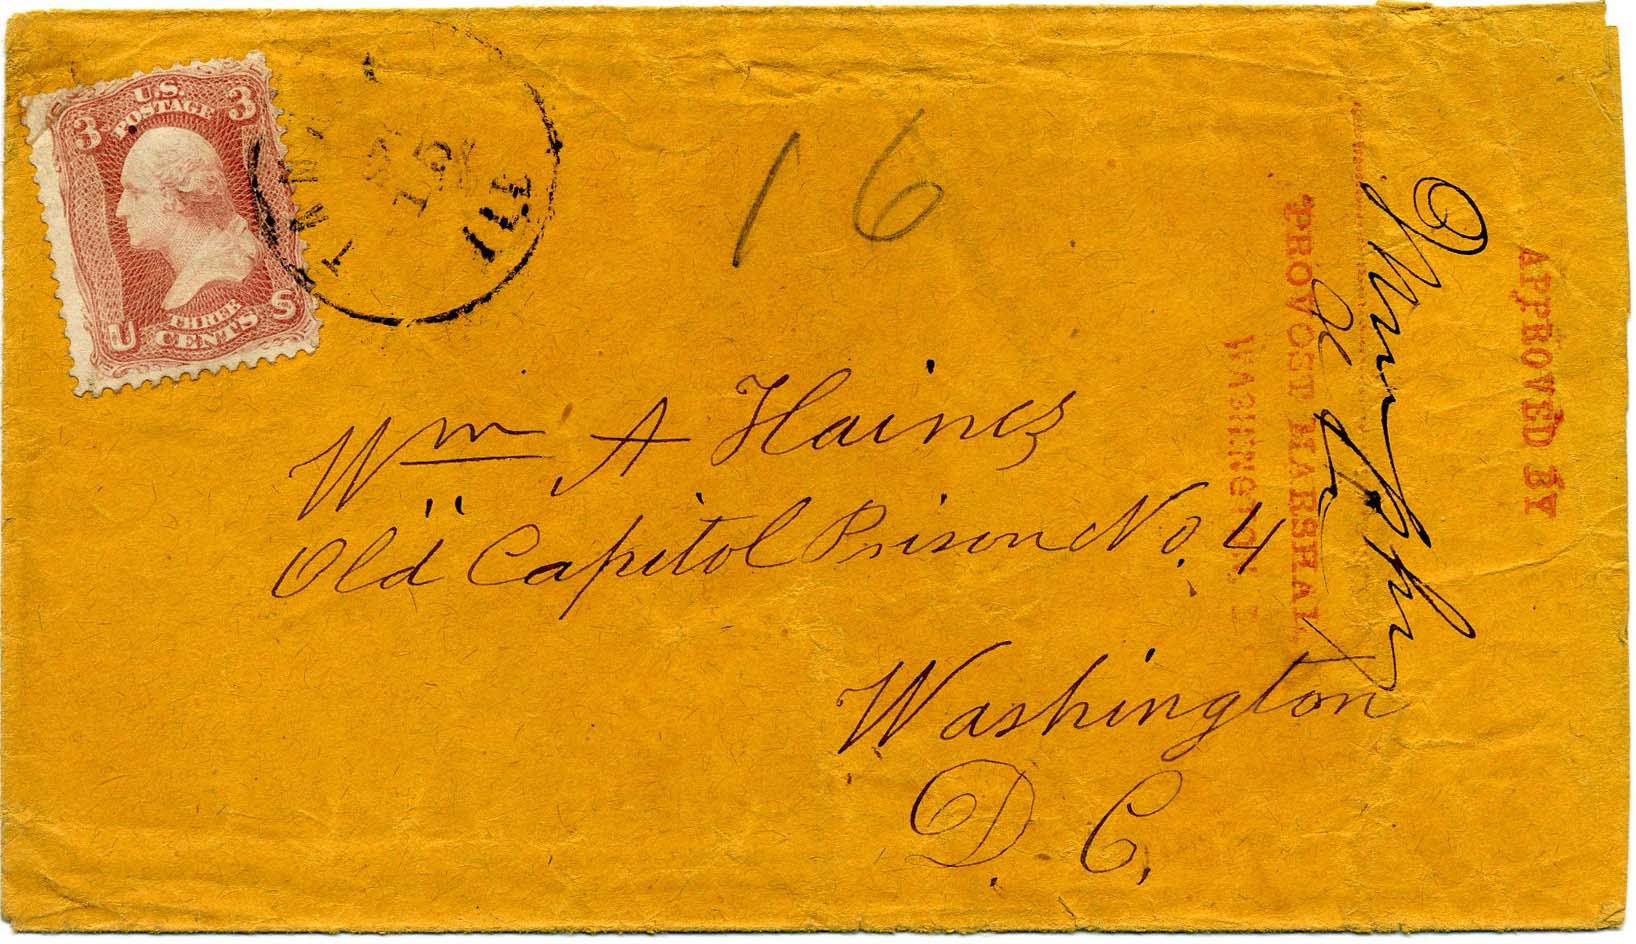 U.S.
POSTAGE
3 3
U THREE S
CENTS
15
16
Wm A Haines
Old Capitol Prison No. 4
Washington
D. C.
APPROVED BY
PROVOST MARSHAL
WASHINGTON